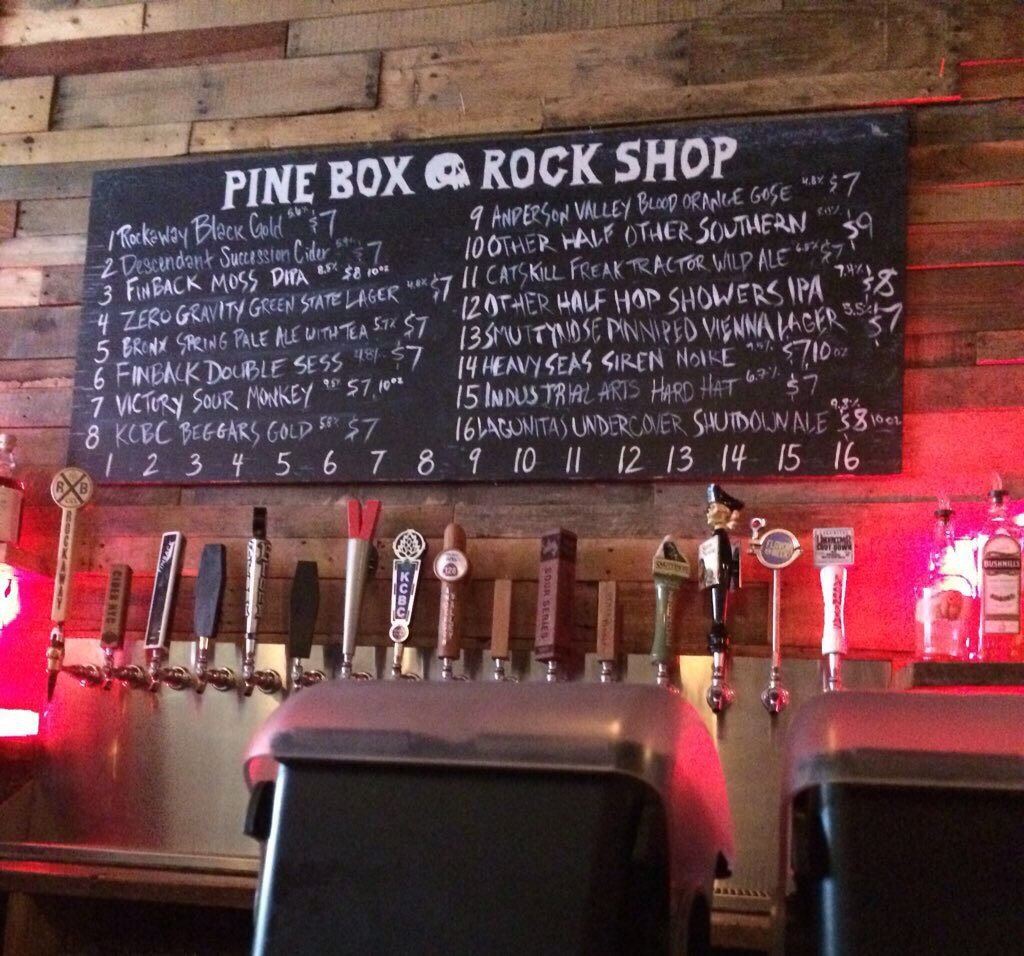 PINE BOX ROCK SHOP
1 Rockaway Black Gold $7
2 Descendant Succession Cider $7
3 FINBACK MOSS DIPA 8.5% $8 10oz
4 ZERO GRAVITY GREEN STATE LAGER $7
5 BRONX SPRING PALE ALE WITH TEA 5.7% $7
6 FINBACK DOUBLE SESS 4.8% $7
7 VICTORY SOUR MONKEY 9.5% $7, 10oz
8 KCBC BEGGARS GOLD 5.8% $7
9 ANDERSON VALLEY BLOOD ORANGE GOSE 4.8% $7
10 OTHER HALF OTHER SOUTHERN $9
11 CATSKILL FREAK TRACTOR WILD ALE $7
12 OTHER HALF HOP SHOWERS IPA $8
13 SMUTTYNOSE PINNIPED VIENNA LAGER 5.5% $7
14 HEAVY SEAS SIREN NOIRE $7, 10oz
15 INDUSTRIAL ARTS HARD HAT 6.7% $7
16 LAGUNITAS UNDERCOVER SHUTDOWN ALE 9.8% $8 10oz
1 2 3 4 5 6 7 8 9 10 11 12 13 14 15 16
R B
ROCKAWAY
CIDER NYC
KCBC
SOUR SERIES
BUSHMILLS